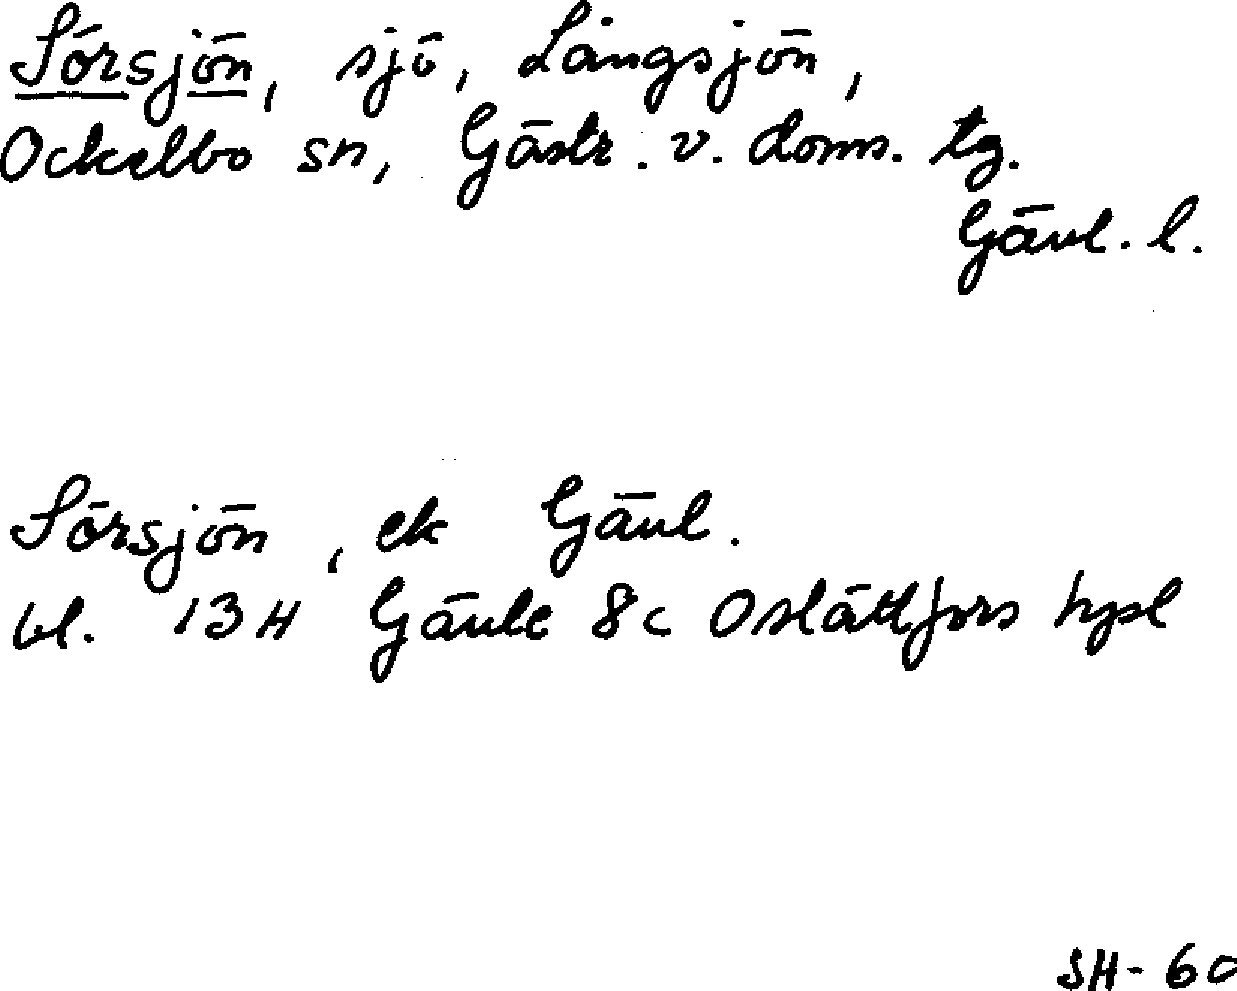 Sörsjön, sjö, Långsjön,
Ockelbo sn, Gästr. v. doms. tg.
Gävl. l.
Sörsjön, ek Gävl.
bl. 13H Gävle 8c Oslättfors hpl
SH-60